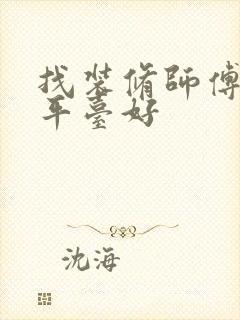 找装脩師傅
平臺好
沈海